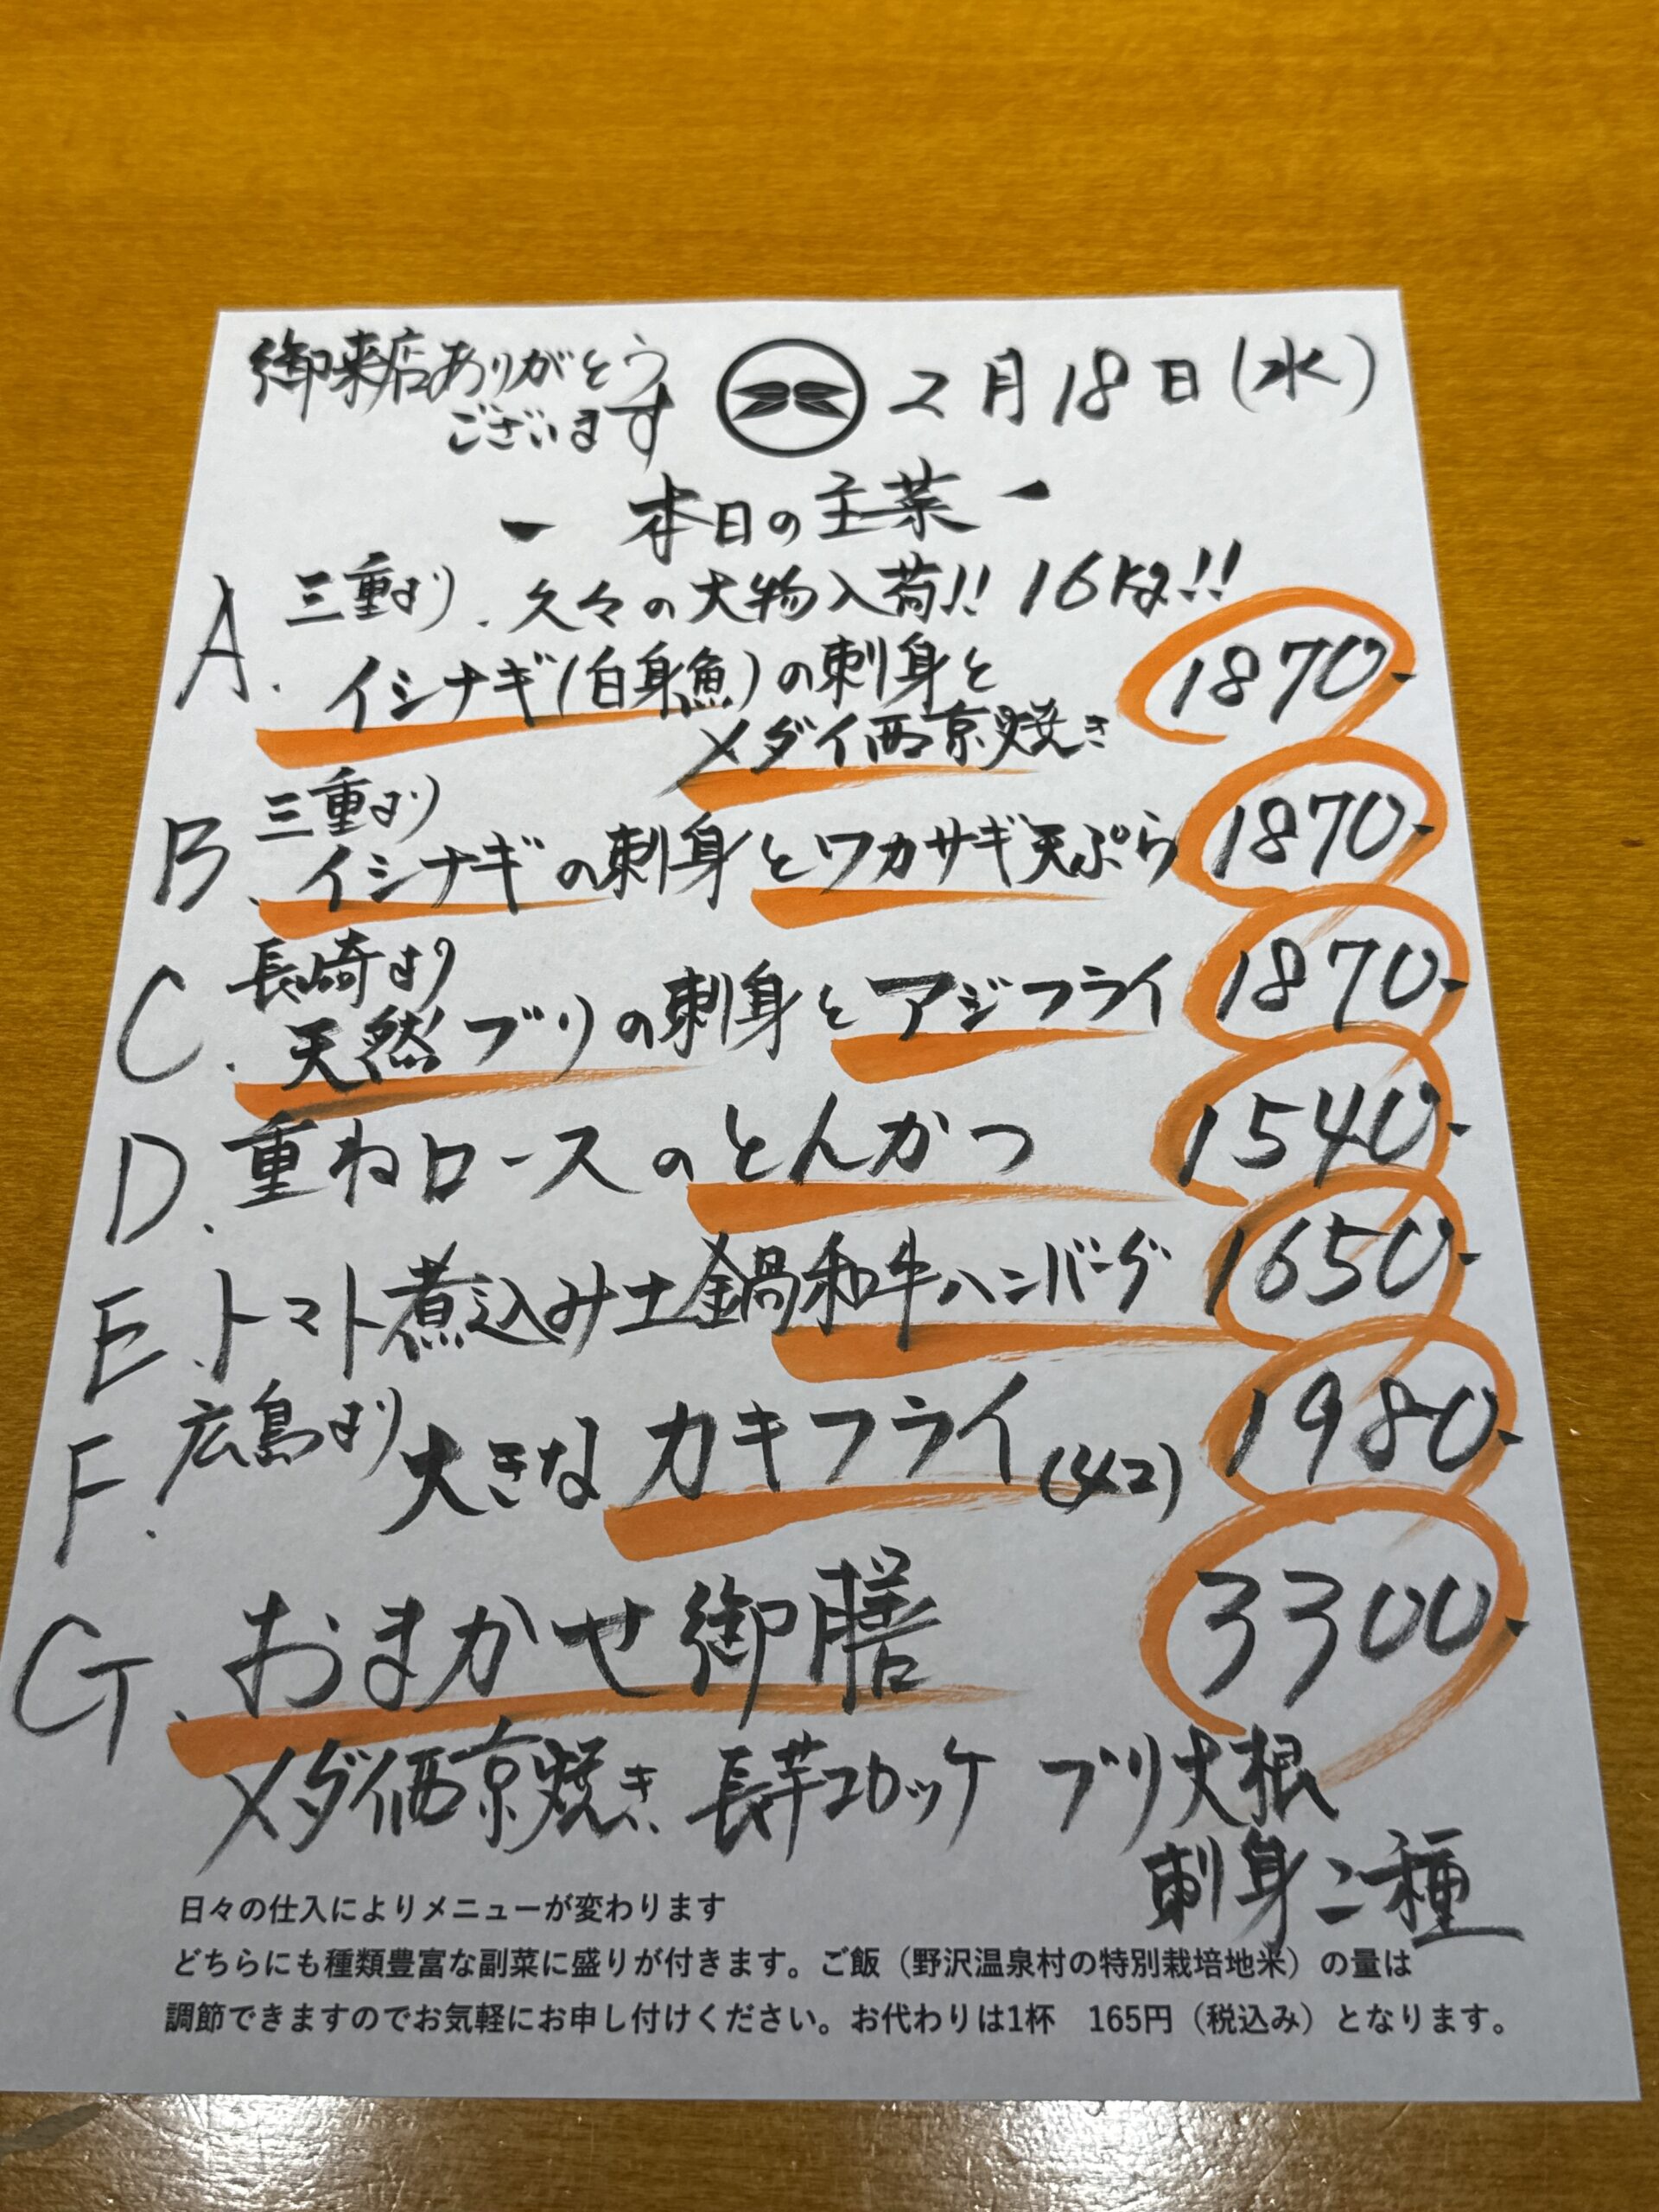 御来店ありがとう
ございます
2月18日(水)
- 本日の主菜 -
A. 三重より.久々の大物入荷!! 16kg!!
イシナギ(白身魚)の刺身と 1870-
メダイ西京焼き
B. 三重より
イシナギの刺身とワカサギ天ぷら 1870-
C. 長崎より
天然ブリの刺身とアジフライ 1870-
D. 重ねロースのとんかつ 1540-
E. トマト煮込み土鍋和牛ハンバーグ 1650-
F. 広島より 大きなカキフライ(4コ) 1980-
G. おまかせ御膳 3300-
メダイ西京焼き 長芋コロッケ ブリ大根
刺身二種
日々の仕入によりメニューが変わります
どちらにも種類豊富な副菜に盛りが付きます。ご飯（野沢温泉村の特別栽培地米）の量は
調節できますのでお気軽にお申し付けください。お代わりは1杯 165円（税込み）となります。